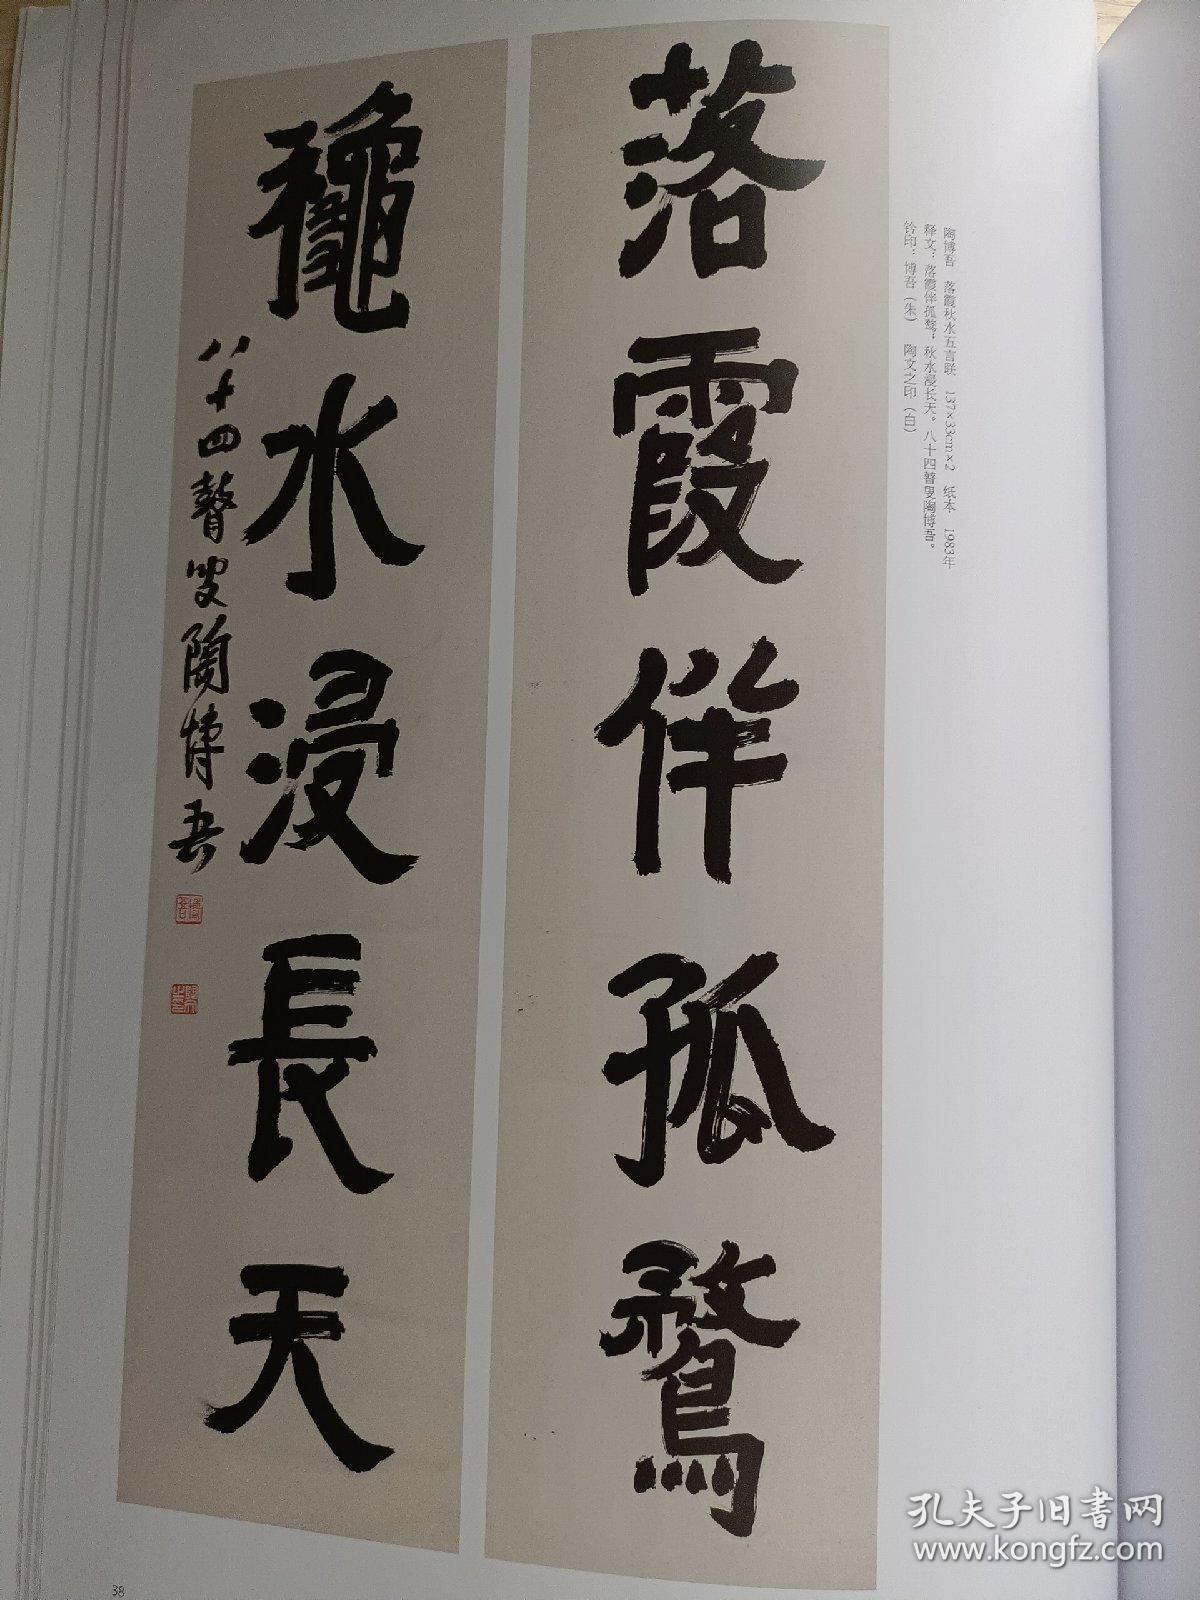 陶博吾　落霞秋水五言联　137×33cm×2　纸本　1983年
释文：落霞伴孤鹜，秋水浸长天。八十四瞽叟陶博吾。
钤印：博吾（朱）　陶文之印（白）
落霞伴孤鶩
龝水浸長天
八十四瞽叟陶博吾
博吾
38
孔夫子旧书网
www.kongfz.com